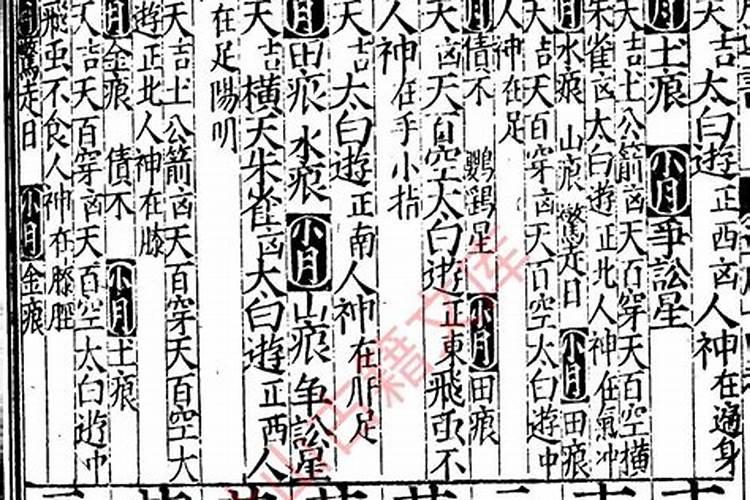 天吉太白遊正西凶人神在遍身
月土痕 小月爭訟星
天吉土公箭凶天百穿天百空橫
朱雀凶太白遊正北人神在氣冲
月水痕 山痕 驚走日 小月田痕
天吉天百穿凶天百空太白遊中
人神在足
月債不 鸚鵡星 小月田痕
天凶天百空太白遊正東飛虫不
人神在手小指
天吉太白遊正南人神在足
月田痕 水痕 小月山痕 爭訟星
天吉橫天朱雀凶太白遊正西人
在足陽明
天吉土公箭凶天百穿天百空太
遊正北人神在膝
月金痕 債不 小月土痕
天吉天百穿凶天百空太白遊中
飛虫不食人神在膝脛
月驚走日 小月金痕